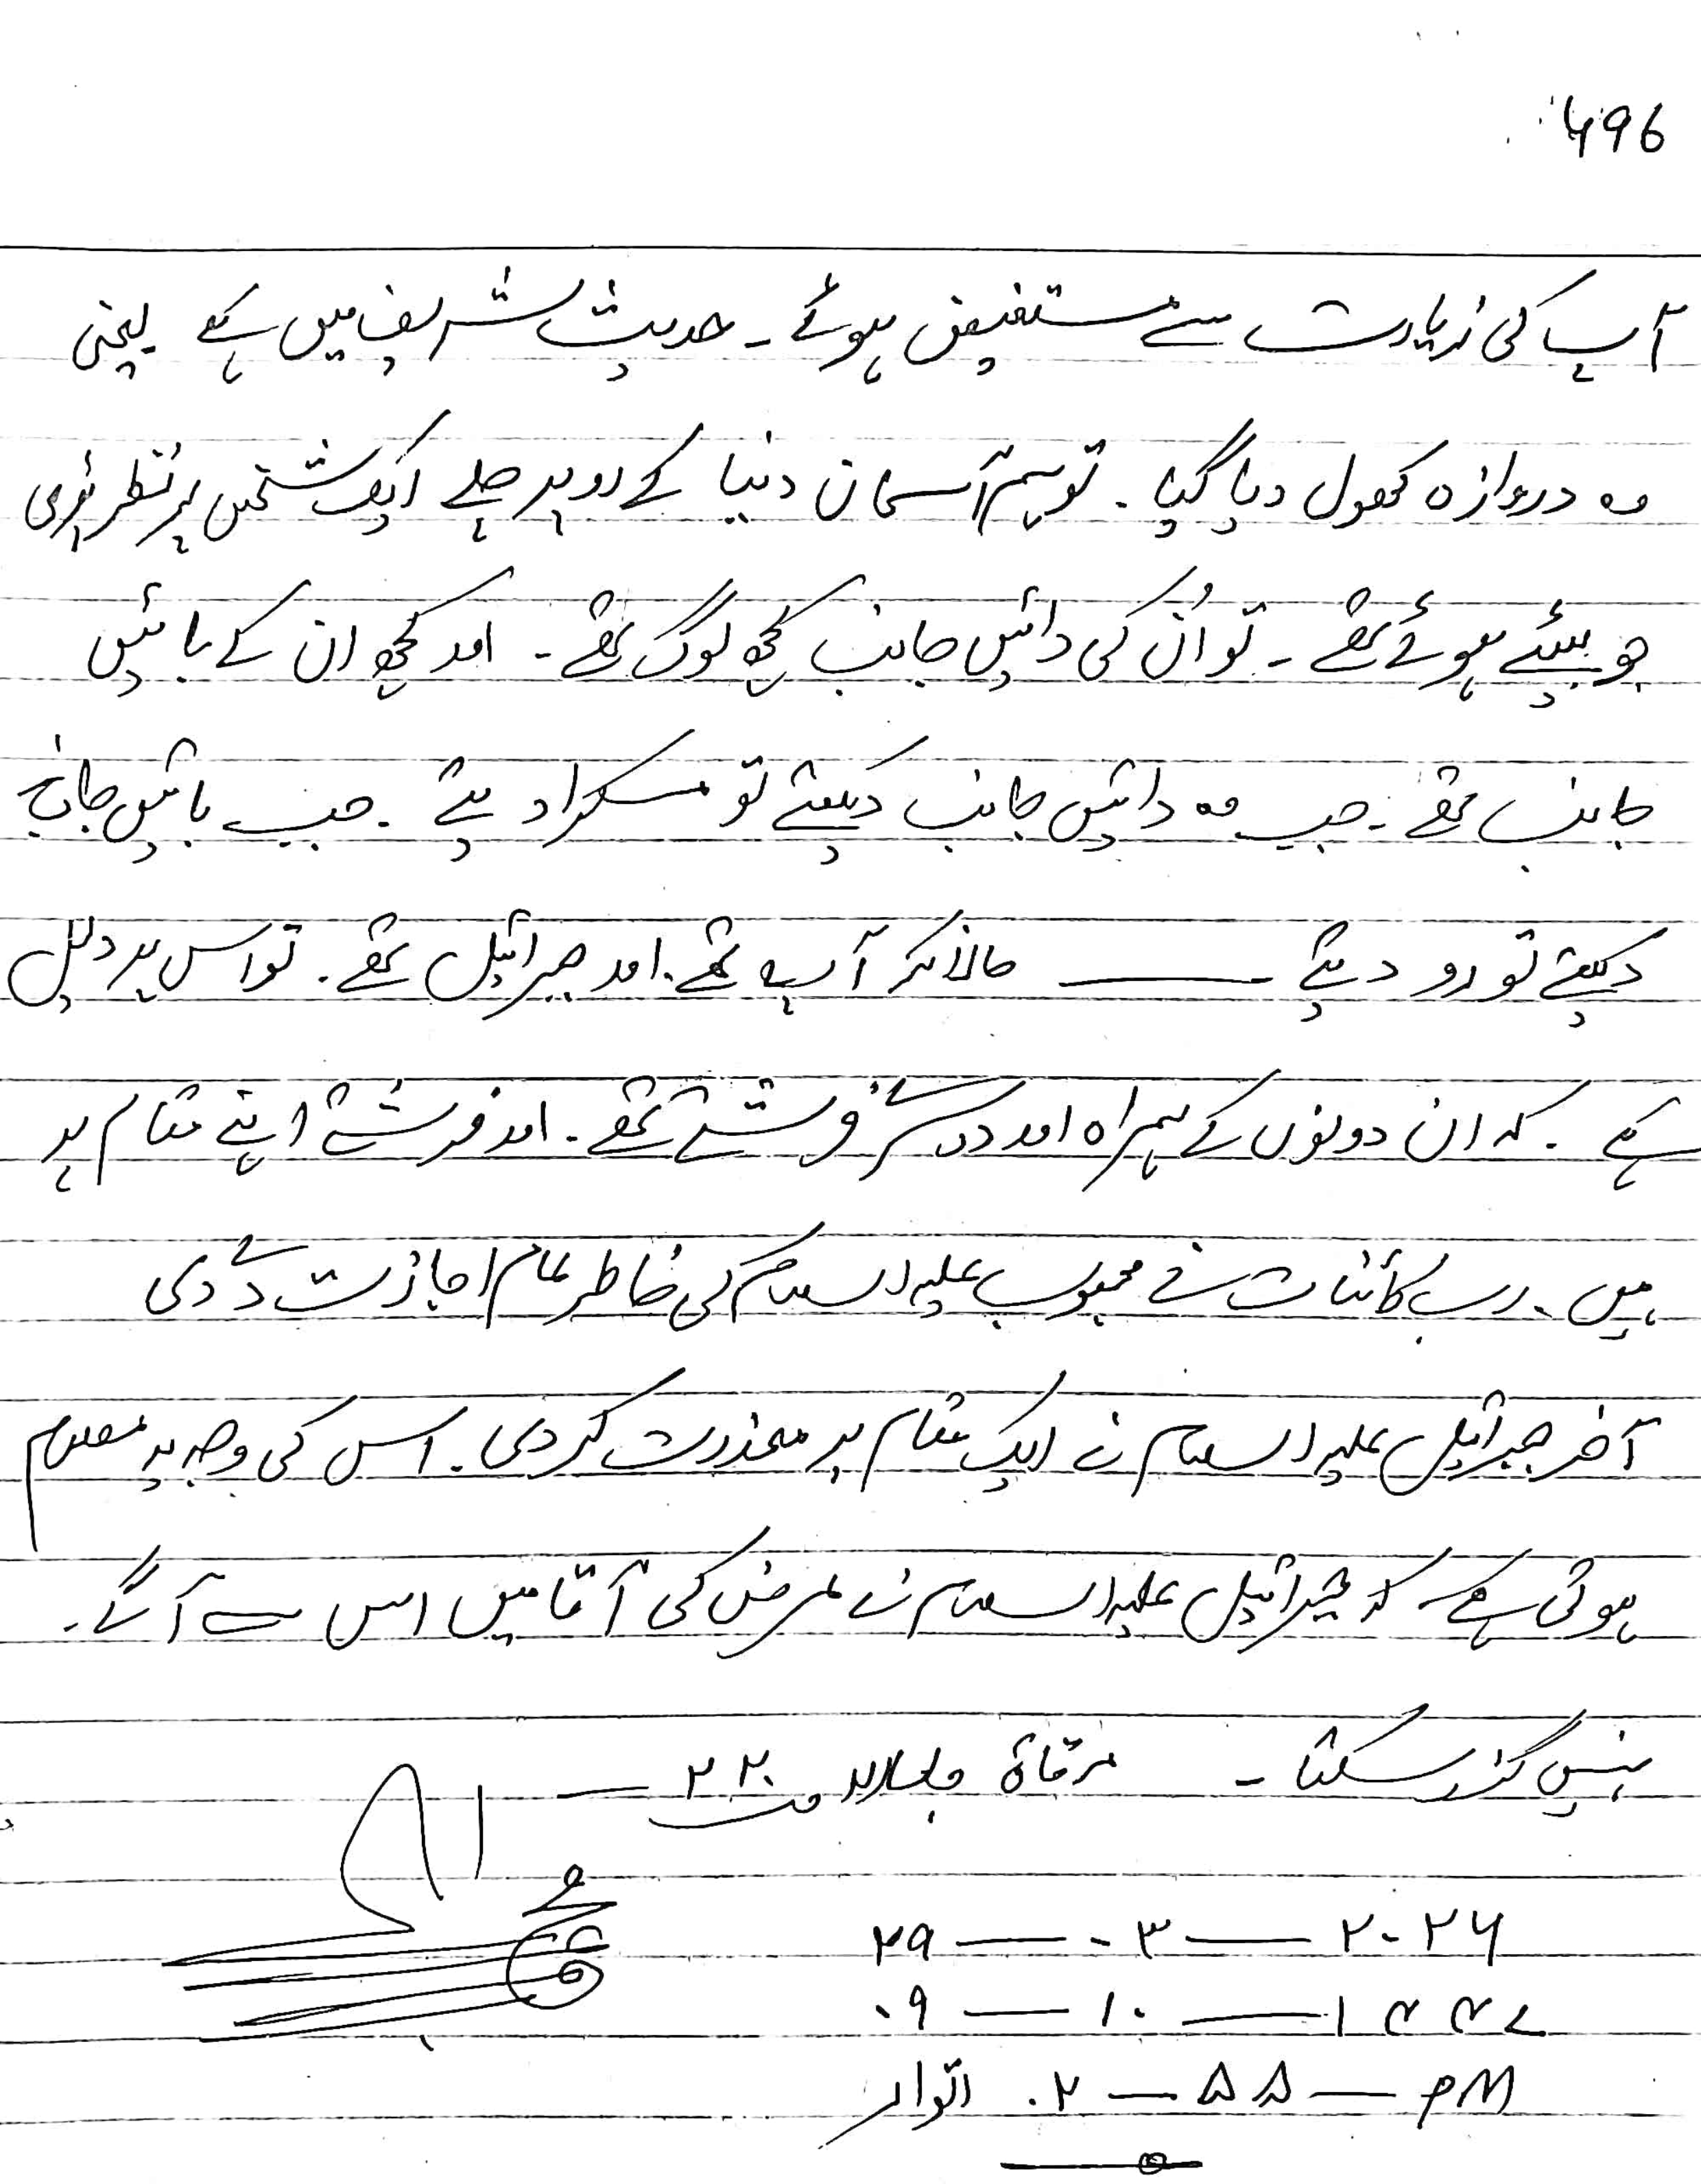 496
آپ کی زیارت سے مستفیض ہوئے ۔ حدیث شریف میں ہے یعنی
وہ دروازہ کھول دیا گیا ۔ تو ہم آسمان دنیا کے اوپر چلے ایک شخص پر نظر پڑی
جو بیٹھے ہوئے تھے ۔ تو اُن کی دائیں جانب کچھ لوگ تھے ۔ اور کچھ ان کے بائیں
جانب تھے ۔ جب وہ دائیں جانب دیکھتے تو مسکرا دیتے ۔ جب بائیں جانب
دیکھتے تو رو دیتے ـــــ حالانکہ آپ تھے ۔ اور جبرائیل تھے ۔ تو اس پر دلیل
ہے ۔ کہ ان دونوں کے ہمراہ اور دوسرے فرشتے تھے ۔ اور فرشتے اپنے مقام پر
ہیں ۔ رب کائنات نے محبوب علیہ السلام کی خاطر عام اجازت دے دی
آخر جبرائیل علیہ السلام نے ایک مقام پر معذرت کر دی ۔ اس کی وجہ یہ معلوم
ہوتی ہے ۔ کہ جبرائیل علیہ السلام نے عرض کی آقا میں اس سے آگے ۔
نہیں گزر سکتا ۔ مرقاۃ جلد ۲۲۰
۲۹ — ۰۳ — ۲۰۲۶
۰۹ — ۱۰ — ۱۴۴۷
۰۲ — ۵۵ — PM اتوار